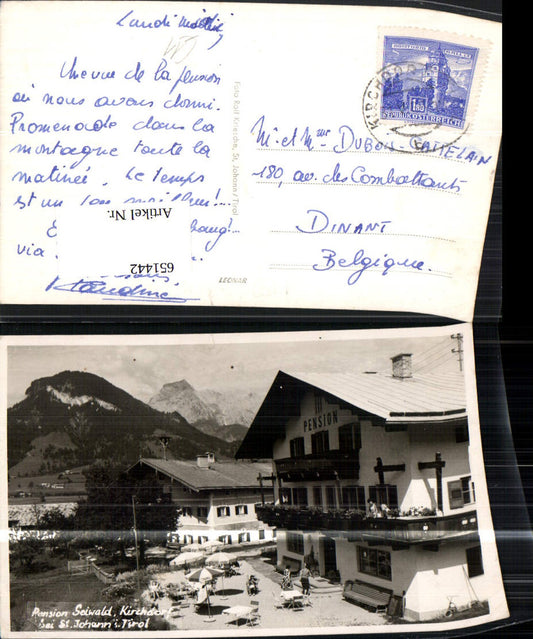 Lundi
Une vue de la pension
où nous avons dormi.
Promenade dans la
montagne toute la
matinée. Le temps
est un
via.
Claudine
Foto Rolf Kriesche, St. Johann/Tirol
LEONAR
Artikel Nr.
651442
KIRCHDO
1.80
REPUBLIK ÖSTERREICH
Mr. et Mme DUBOIS-CAMELAIN
180, av. des Combattants
DINANT
Belgique.
PENSION
Pension Seiwald, Kirchdorf
bei St. Johann i. Tirol